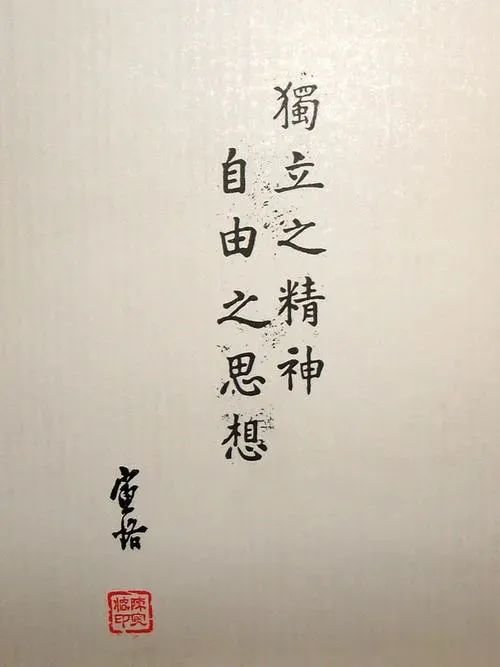 獨立之精神
自由之思想
寅恪
陳寅恪印